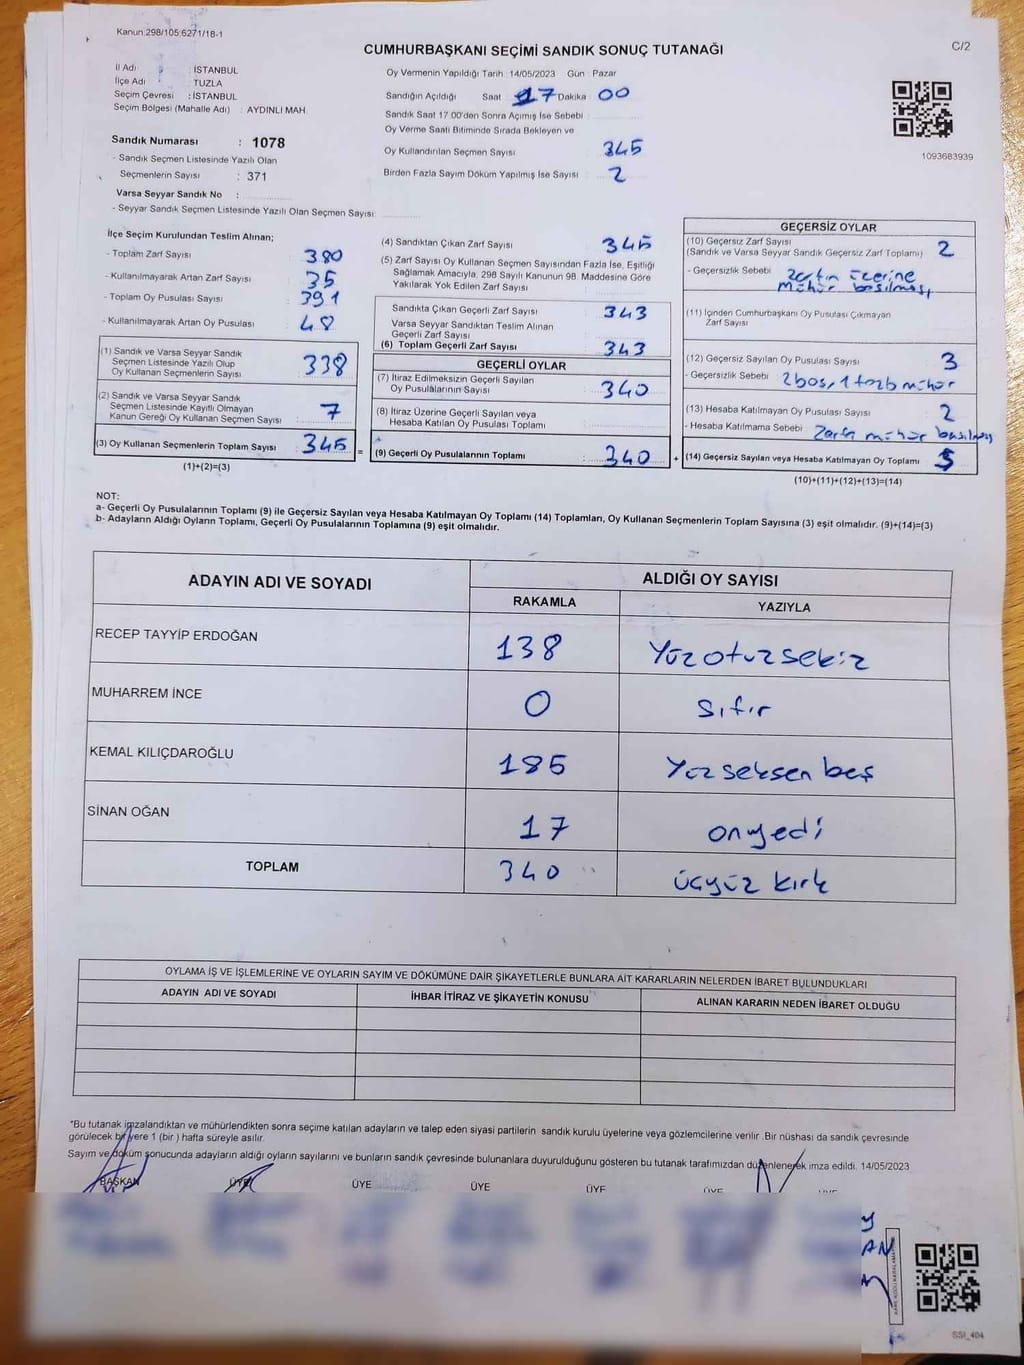 Kanun:298/105;6271/18-1
CUMHURBAŞKANI SEÇİMİ SANDIK SONUÇ TUTANAĞI
C/2
İl Adı : İSTANBUL
İlçe Adı : TUZLA
Seçim Çevresi : İSTANBUL
Seçim Bölgesi (Mahalle Adı) : AYDINLI MAH
Sandık Numarası : 1078
- Sandık Seçmen Listesinde Yazılı Olan
Seçmenlerin Sayısı : 371
Varsa Seyyar Sandık No :
- Seyyar Sandık Seçmen Listesinde Yazılı Olan Seçmen Sayısı:
Oy Vermenin Yapıldığı Tarih :14/05/2023 Gün : Pazar
Sandığın Açıldığı Saat : 17 Dakika : 00
Sandık Saat 17:00'den Sonra Açımış İse Sebebi :
Oy Verme Saati Bitiminde Sırada Bekleyen ve
Oy Kullandırılan Seçmen Sayısı : 345
Birden Fazla Sayım Döküm Yapılmış İse Sayısı : 2
1093683939
İlçe Seçim Kurulundan Teslim Alınan;
- Toplam Zarf Sayısı : 380
- Kullanılmayarak Artan Zarf Sayısı : 35
- Toplam Oy Pusulası Sayısı : 391
- Kullanılmayarak Artan Oy Pusulası : 48
(1) Sandık ve Varsa Seyyar Sandık
Seçmen Listesinde Yazılı Olup
Oy Kullanan Seçmenlerin Sayısı : 338
(2) Sandık ve Varsa Seyyar Sandık
Seçmen Listesinde Kayıtlı Olmayan
Kanun Gereği Oy Kullanan Seçmen Sayısı : 7
(3) Oy Kullanan Seçmenlerin Toplam Sayısı : 345 =
(1)+(2)=(3)
(4) Sandıktan Çıkan Zarf Sayısı : 345
(5) Zarf Sayısı Oy Kullanan Seçmen Sayısından Fazla İse, Eşitliği
Sağlamak Amacıyla, 298 Sayılı Kanunun 98. Maddesine Göre
Yakılarak Yok Edilen Zarf Sayısı :
Sandıkta Çıkan Geçerli Zarf Sayısı : 343
Varsa Seyyar Sandıktan Teslim Alınan
Geçerli Zarf Sayısı :
(6) Toplam Geçerli Zarf Sayısı : 343
GEÇERLİ OYLAR
(7) İtiraz Edilmeksizin Geçerli Sayılan
Oy Pusulalarının Sayısı : 340
(8) İtiraz Üzerine Geçerli Sayılan veya
Hesaba Katılan Oy Pusulası Toplamı :
(9) Geçerli Oy Pusulalarının Toplamı : 340 +
GEÇERSİZ OYLAR
(10) Geçersiz Zarf Sayısı
(Sandık ve Varsa Seyyar Sandık Geçersiz Zarf Toplamı) : 2
- Geçersizlik Sebebi : Zarfın üzerine
mühür basılmış
(11) İçinden Cumhurbaşkanı Oy Pusulası Çıkmayan
Zarf Sayısı :
(12) Geçersiz Sayılan Oy Pusulası Sayısı : 3
- Geçersizlik Sebebi : 2 boş, 1 fazla mühür
(13) Hesaba Katılmayan Oy Pusulası Sayısı : 2
- Hesaba Katılmama Sebebi : Zarfa mühür basılmış
(14) Geçersiz Sayılan veya Hesaba Katılmayan Oy Toplamı : 5
(10)+(11)+(12)+(13)=(14)
NOT:
a- Geçerli Oy Pusulalarının Toplamı (9) ile Geçersiz Sayılan veya Hesaba Katılmayan Oy Toplamı (14) Toplamları, Oy Kullanan Seçmenlerin Toplam Sayısına (3) eşit olmalıdır. (9)+(14)=(3)
b- Adayların Aldığı Oyların Toplamı, Geçerli Oy Pusulalarının Toplamına (9) eşit olmalıdır.
ADAYIN ADI VE SOYADI ALDIĞI OY SAYISI
RAKAMLA YAZIYLA
RECEP TAYYİP ERDOĞAN 138 Yüzotuzsekiz
MUHARREM İNCE 0 Sıfır
KEMAL KILIÇDAROĞLU 185 Yüzseksen beş
SİNAN OĞAN 17 onyedi
TOPLAM 340 üçyüz kırk
OYLAMA İŞ VE İŞLEMLERİNE VE OYLARIN SAYIM VE DÖKÜMÜNE DAİR ŞİKAYETLERLE BUNLARA AİT KARARLARIN NELERDEN İBARET BULUNDUKLARI
ADAYIN ADI VE SOYADI İHBAR İTİRAZ VE ŞİKAYETİN KONUSU ALINAN KARARIN NEDEN İBARET OLDUĞU
*Bu tutanak imzalandıktan ve mühürlendikten sonra seçime katılan adayların ve talep eden siyasi partilerin sandık kurulu üyelerine veya gözlemcilerine verilir .Bir nüshası da sandık çevresinde
görülecek bir yere 1 (bir ) hafta süreyle asılır.
Sayım ve döküm sonucunda adayların aldığı oyların sayılarını ve bunların sandık çevresinde bulunanlara duyurulduğunu gösteren bu tutanak tarafımızdan düzenlenerek imza edildi. 14/05/2023
BAŞKAN ÜYE ÜYE ÜYE ÜYE ÜYE ÜYE
SSI_404